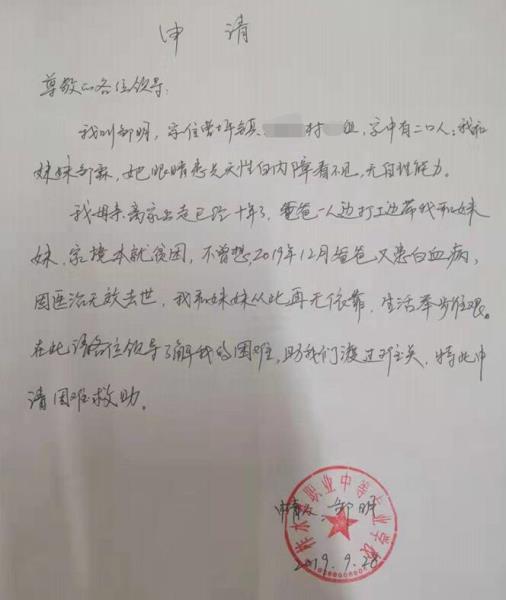 申请
尊敬的各位领导:
我叫邹明，家住曾坪镇 村 组，家中有二口人：我和
妹妹邹霖，她眼睛患先天性白内障看不见，无自理能力。
我母亲离家出走已经十年了，爸爸一人边打工边带我和妹
妹，家境本就贫困，不曾想，2019年12月爸爸又患白血病，
因医治无效去世，我和妹妹从此再无依靠，生活举步维艰。
在此请各位领导了解我的困难，助我们渡过难关，特此申
请困难救助。
柞水 职业中等专业学校
申请人：邹明
2019.9.28